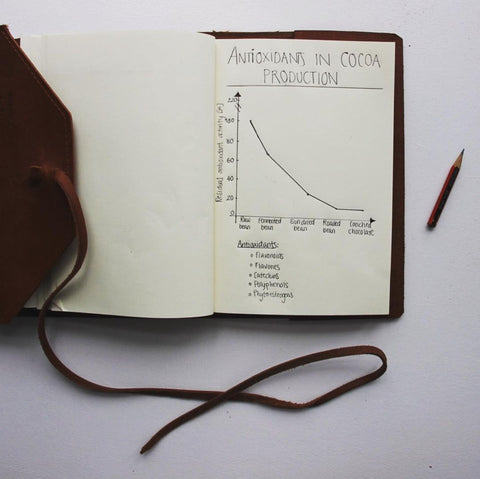 ANTIOXIDANTS IN COCOA
PRODUCTION
Residual antioxidant activity (%)
120
100
80
60
40
20
0
Raw bean
Fermented bean
Roasted bean
Conched chocolate
Antioxidants:
Flavonoids
Flavones
Catechins
Polyphenols
Phytoestrogens